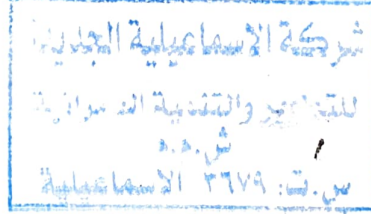 شركة الإسماعيلية الجديدة
للتطوير والتنمية العمرانية
ش.م.م
س.ت: ٣٦٧٩ الاسماعيلية